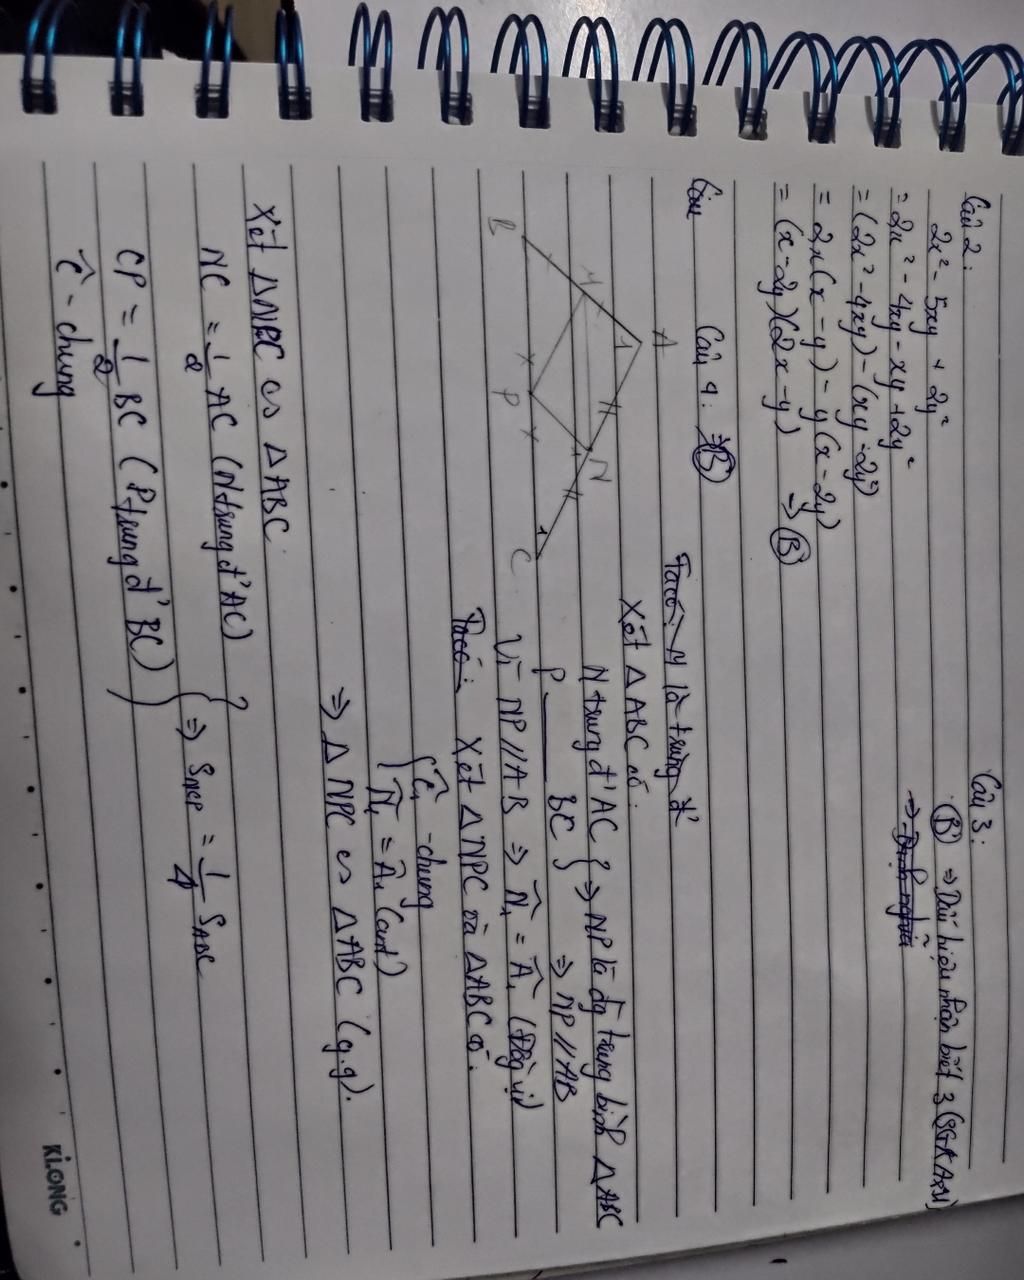 Câu 2:
2x² - 5xy + 2y²
= 2x² - 4xy - xy + 2y²
= (2x² - 4xy) - (xy - 2y²)
= 2x(x - y) - y(x - 2y)
= (x - 2y)(2x - y) → B
Câu 3:
B ⇒ Dấu hiệu nhận biết 3 (SGK
⇒ Định nghĩa
Câu
Câu 4: ⇒ B
A
1
M
N
1
B
P
C
1
Ta có: M là trung đ'
Xét ΔABC có:
N trung đ' AC } ⇒ NP là đg trung bình ΔABC
P ___ BC } ⇒ NP // AB
Vì NP // AB ⇒ N̂₁ = Â₁ (Đồng vị)
Ta có: Xét ΔNPC và ΔABC có:
{ Ĉ₁ - chung
N̂₁ = Â₁ (cmt)
⇒ ΔNPC ∽ ΔABC (g.g).
Xét ΔNPC ∽ ΔABC
NC = 1/2 AC (N trung đ' AC)
CP = 1/2 BC (P trung đ' BC) } ⇒ S_NCP = 1/4 S_ABC
Ĉ - chung
KLONG